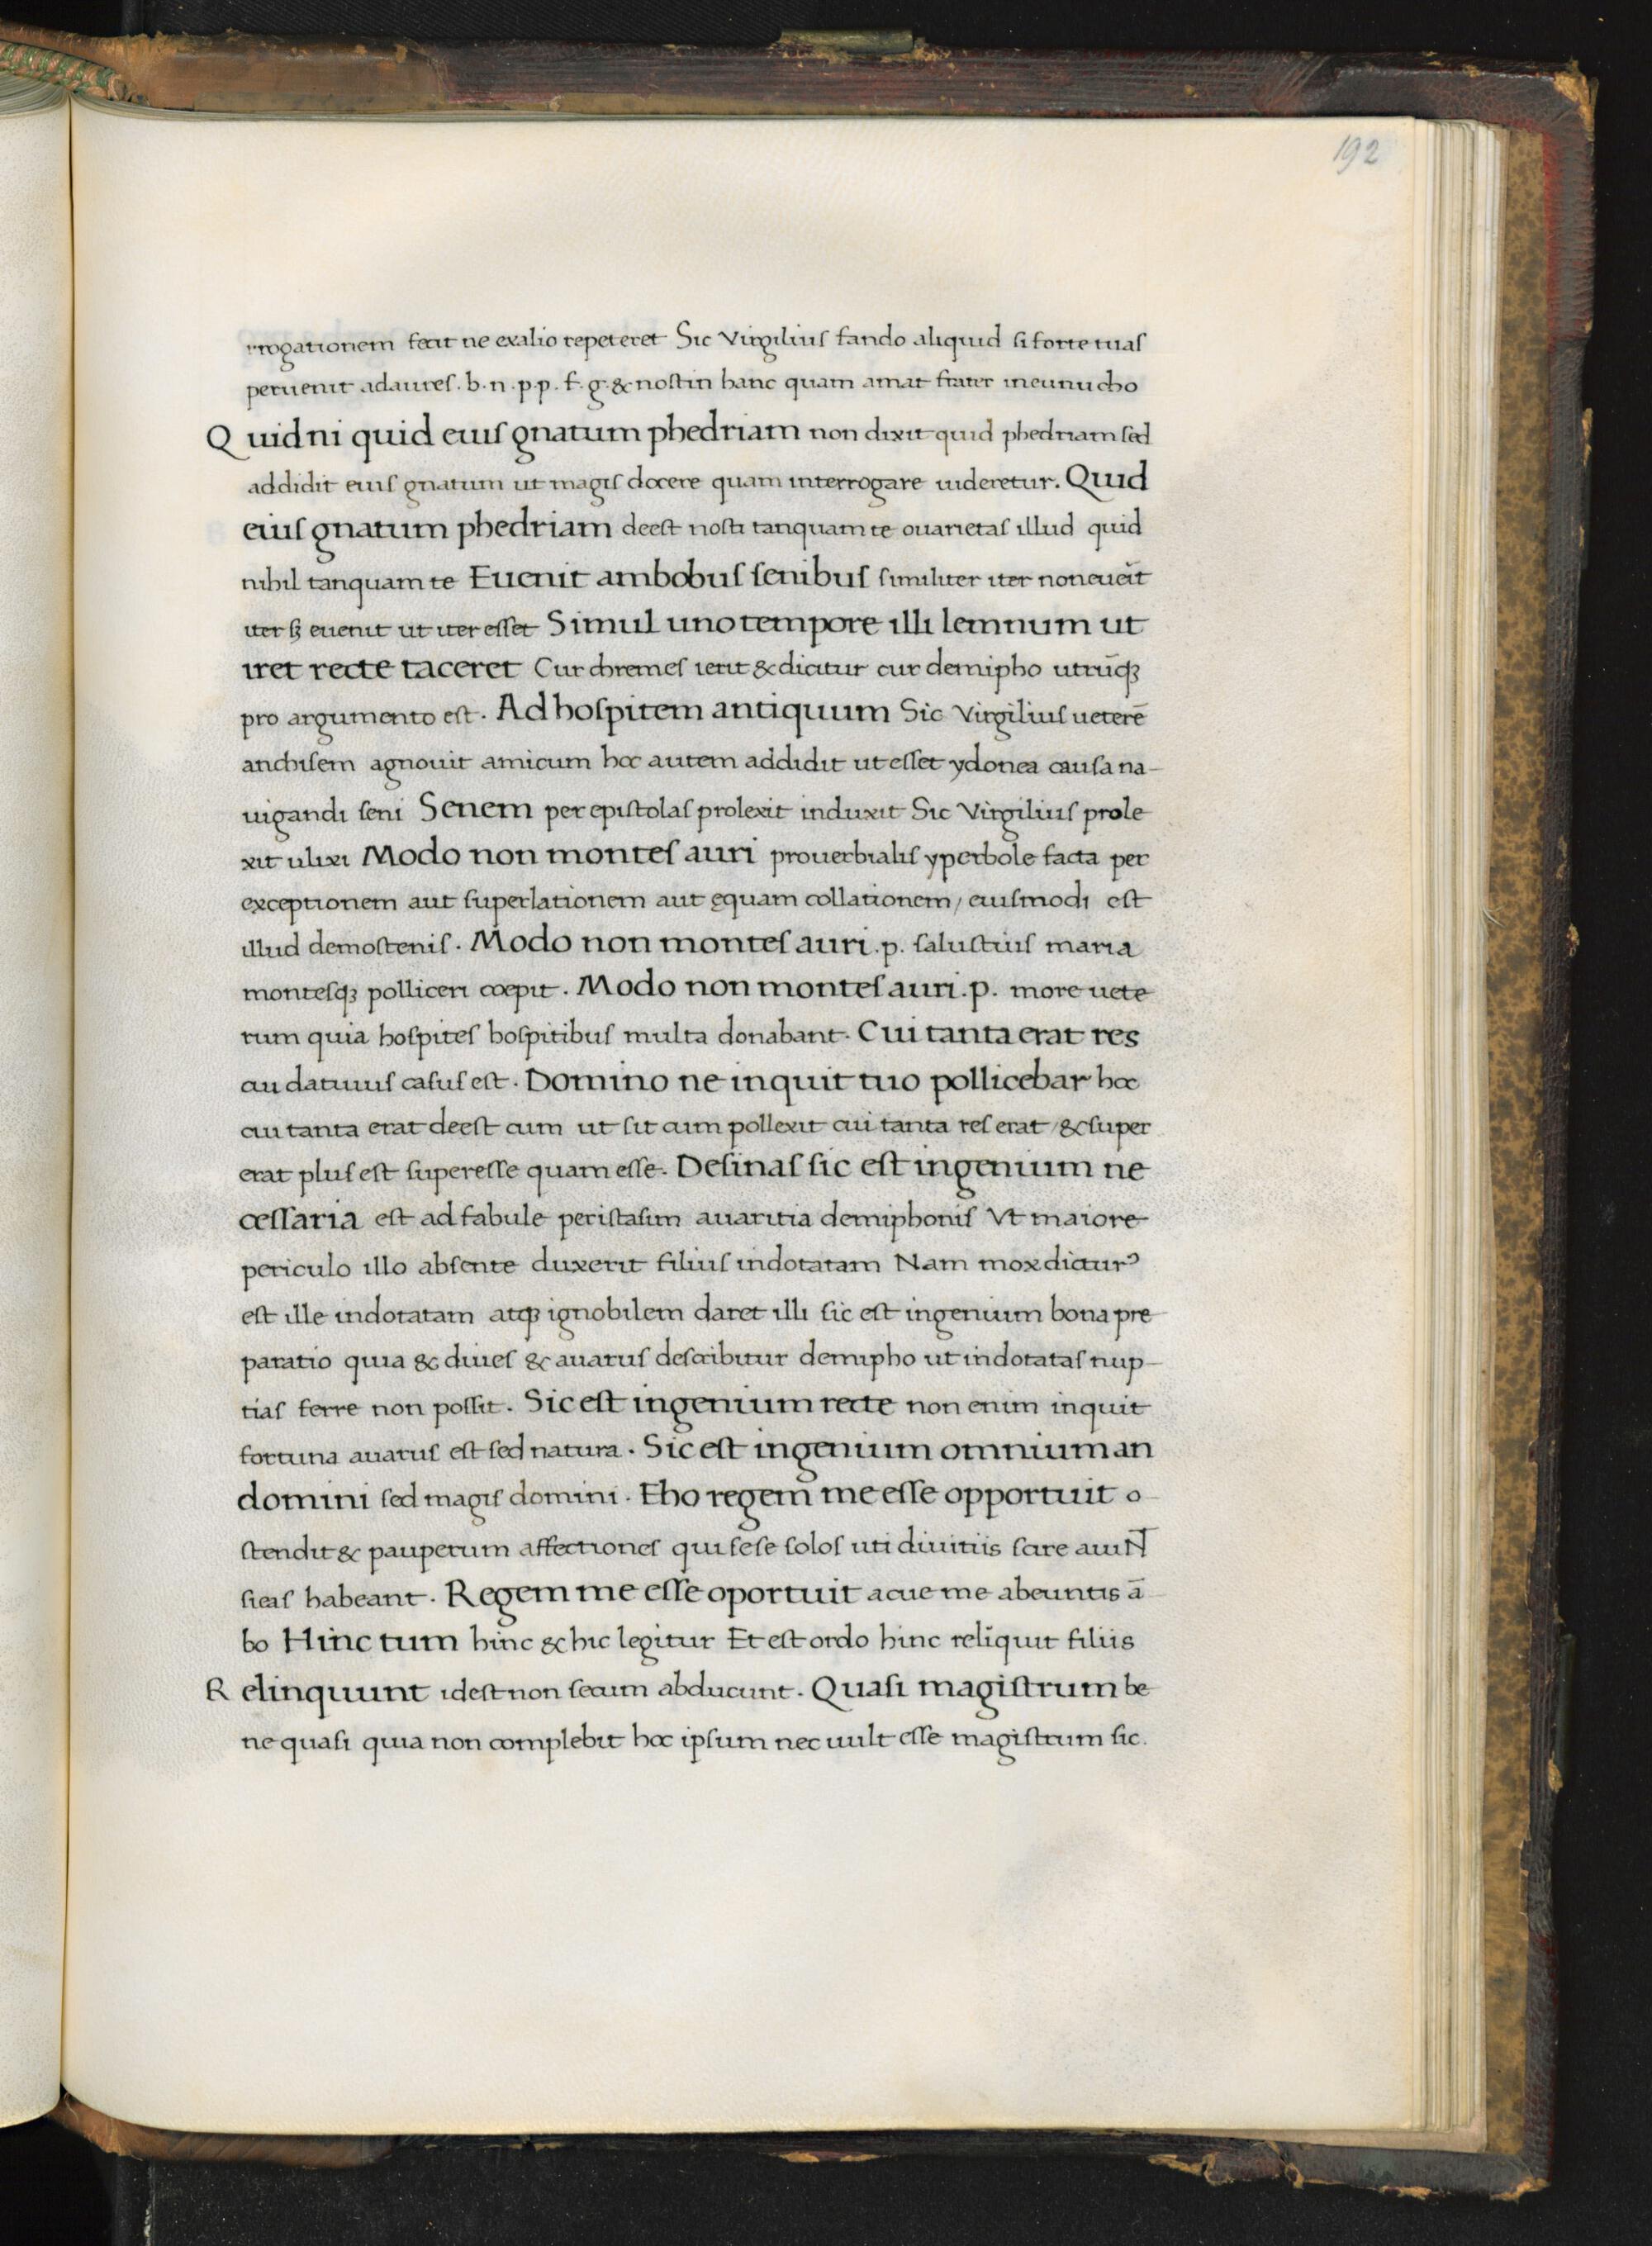 192
rrogationem fecit ne exalio repeteret Sic Virgiliuſ fando aliquid ſi forte tuaſ
peruenit adaureſ. b. n. p. p. f. g. & noſtin hanc quam amat frater ineunucho
Quidni quid eiuſ gnatum phedriam non dixit quid phedriam ſed
addidit eiuſ gnatum ut magiſ docere quam interrogare uideretur. Quid
eiuſ gnatum phedriam deeſt noſti tanquam te ouarietaſ illud quid
nihil tanquam te Euenit ambobuſ ſenibuſ ſimiliter iter non eueīt
iter ſꝫ euenit ut iter eſſet Simul uno tempore illi lemnum ut
iret recte taceret Cur chremeſ ierit & dicitur cur demipho utrūqꝫ
pro argumento eſt. Ad hoſpitem antiquum Sic Virgiliuſ ueterē
anchiſem agnouit amicum hoc autem addidit ut eſſet ydonea cauſa na-
uigandi ſeni Senem per epiſtolaſ prolexit induxit Sic Virgiliuſ prole
xit ulixi Modo non monteſ auri prouerbialiſ yperbole facta per
exceptionem aut ſuperlationem aut ęquam collationem / eiuſmodi eſt
illud demoſteniſ. Modo non monteſ auri. p. ſaluſtiuſ maria
monteſqꝫ polliceri coepit. Modo non monteſ auri. p. more uete
rum quia hoſpiteſ hoſpitibuſ multa donabant. Cui tanta erat res
cui datiuuſ caſuſ eſt. Domino ne inquit tuo pollicebar hoc
cui tanta erat deeſt cum ut ſit cum pollexit cui tanta reſ erat / & ſuper
erat pluſ eſt ſupereſſe quam eſſe. Deſinaſ ſic eſt ingenium ne
ceſſaria eſt ad fabule periſtaſim auaritia demiphoniſ Vt maiore
periculo illo abſente duxerit filiuſ indotatam Nam mox dicturꝰ
eſt ille indotatam atqꝫ ignobilem daret illi ſic eſt ingenium bona pre
paratio quia & diueſ & auaruſ deſcribitur demipho ut indotataſ nup-
tiaſ ferre non poſſit. Sic eſt ingenium recte non enim inquit
fortuna auaruſ eſt ſed natura. Sic eſt ingenium omnium an
domini ſed magiſ domini. Eho regem me eſſe opportuit o
ſtendit & pauperum affectioneſ qui ſeſe ſoloſ uti diuitiis ſcire auiN̄
ſicaſ habeant. Regem me eſſe oportuit acue me abeuntis ā
bo Hinc tum hinc & hic legitur Et eſt ordo hinc reliquit filiis
Relinquunt idest non ſecum abducunt. Quaſi magiſtrum be
ne quaſi quia non complebit hoc ipſum nec uult eſſe magiſtrum ſic.